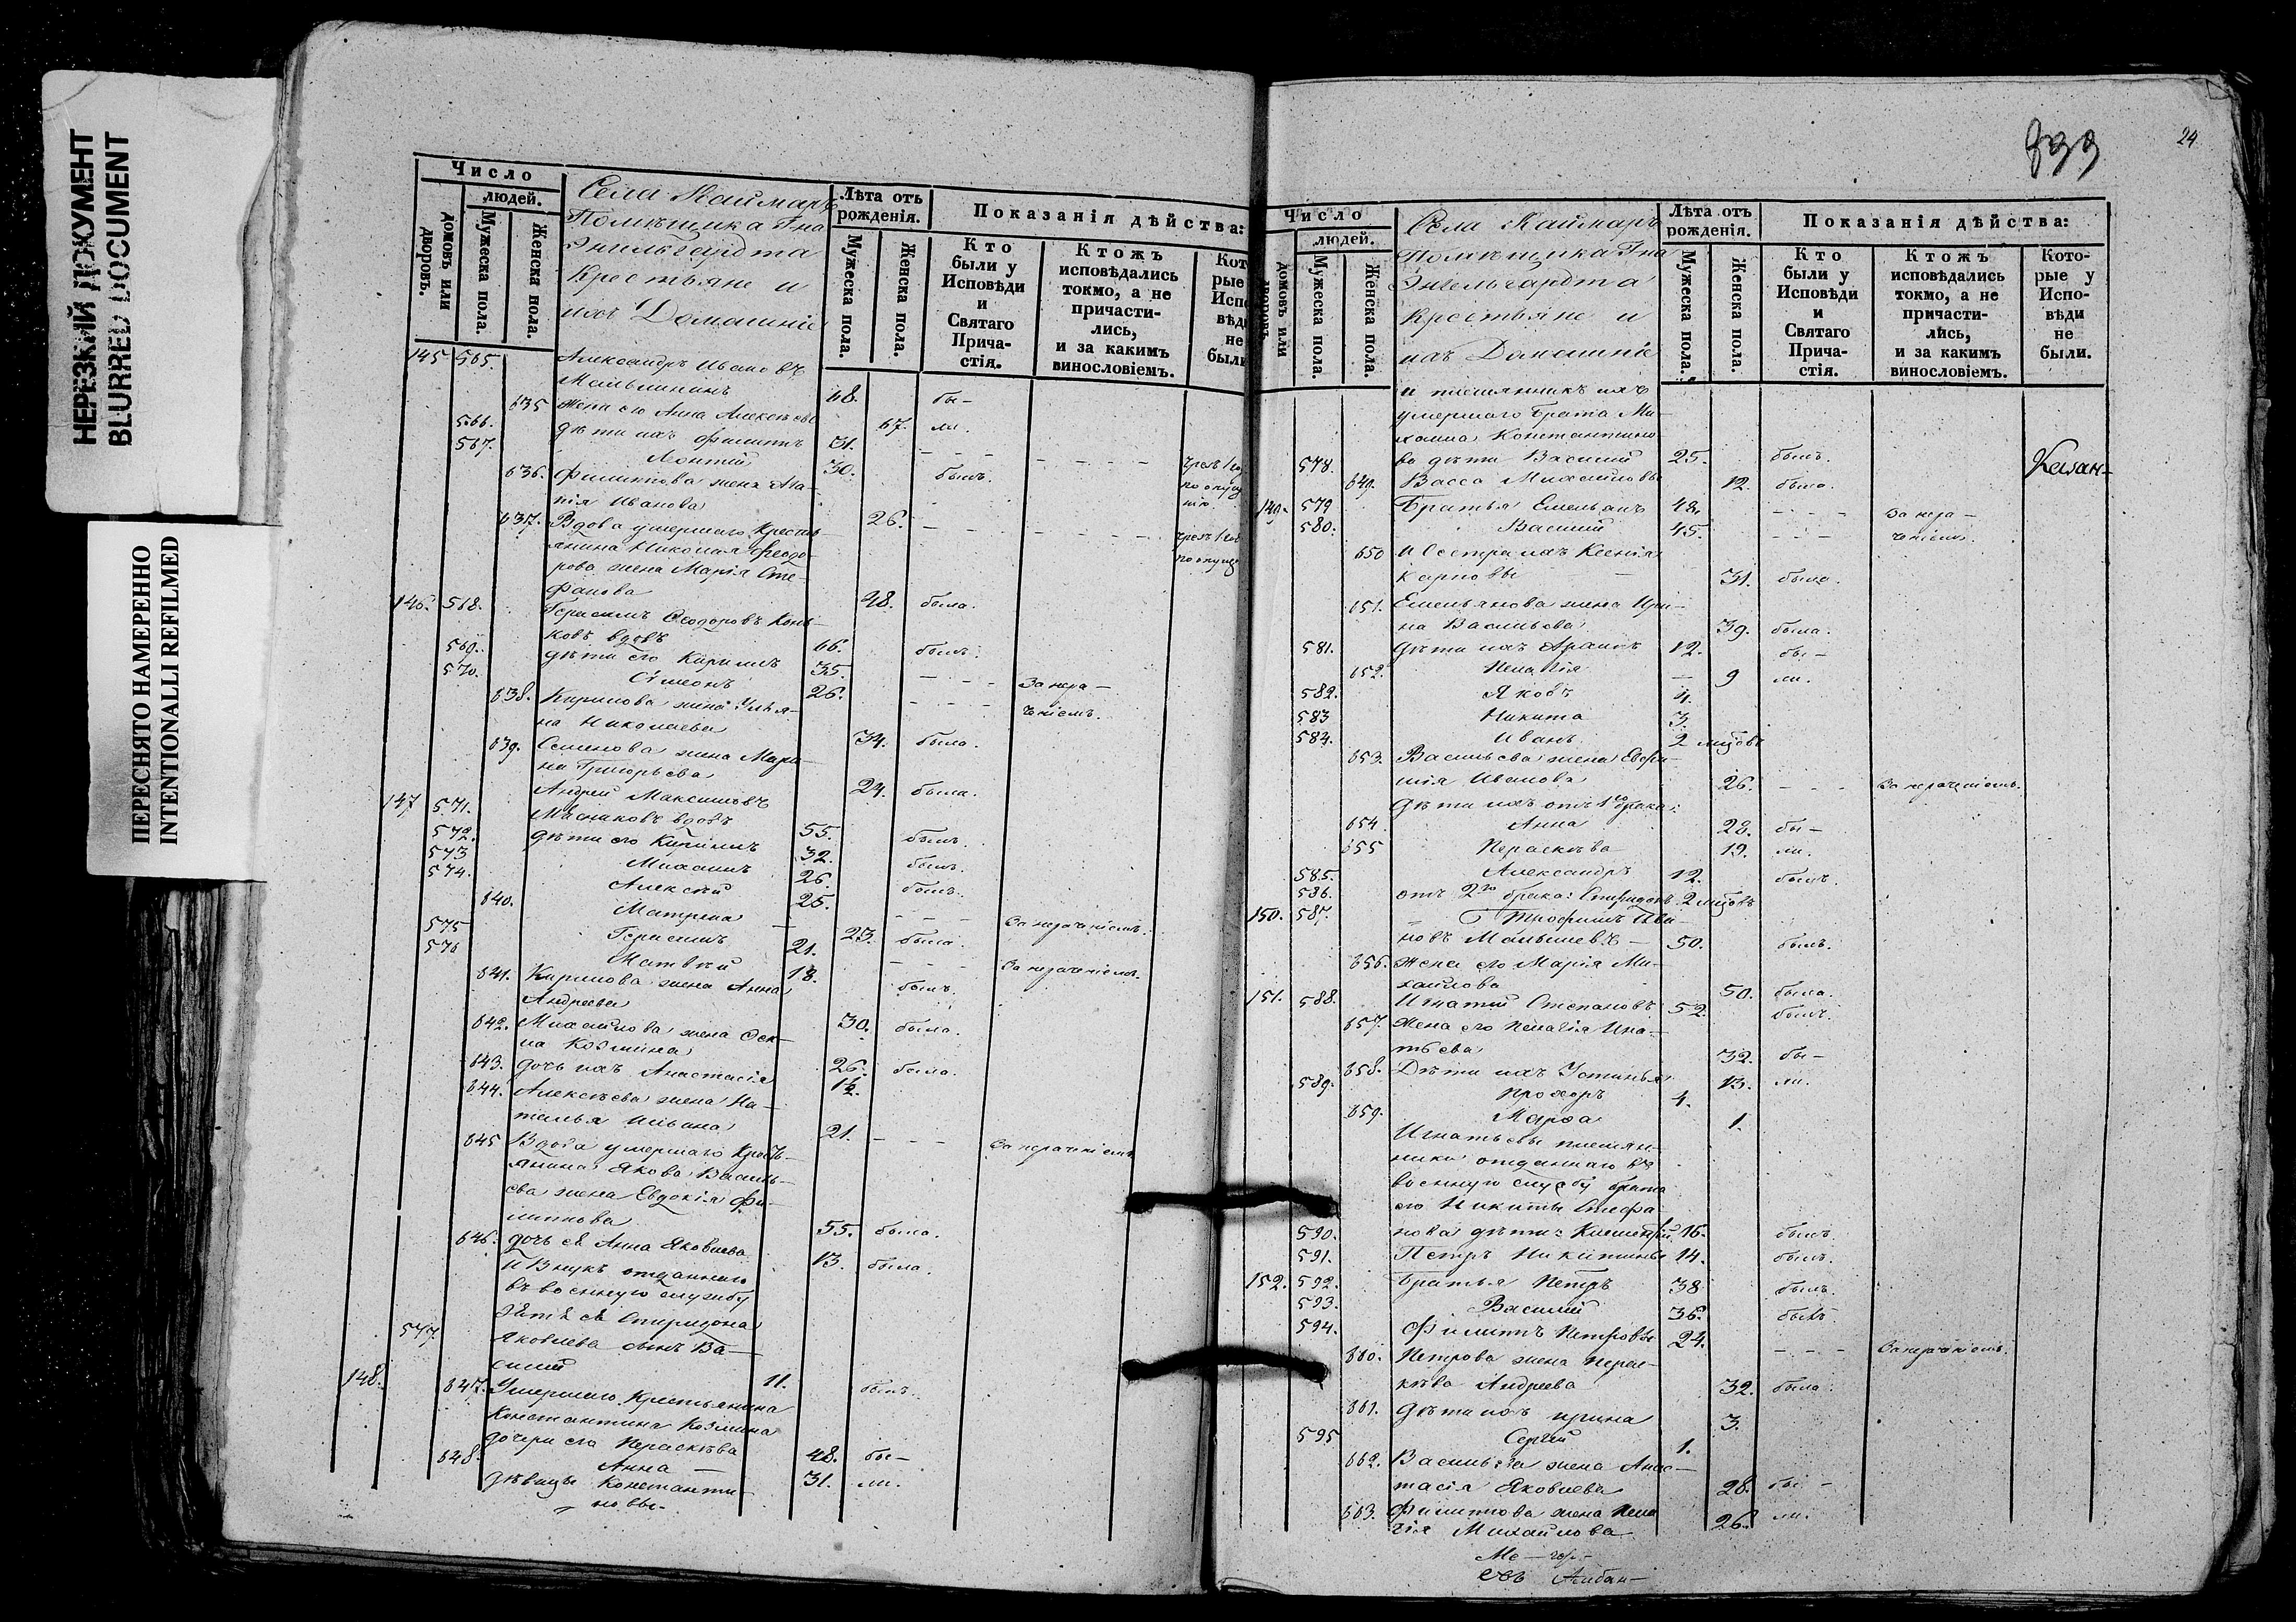 НЕРЕЗКИЙ ДОКУМЕНТ
BLURRED DOCUMENT
ПЕРЕСНЯТО НАМЕРЕННО
INTENTIONALLI REFILMED
Число
людей.
домовъ или дворовъ.
Мужеска пола.
Женска пола.
Села Каймаръ
Помѣщика Гна
Энгельгардта
Крестьяне и
ихъ Домашніе
Лѣта отъ рожденія.
Мужеска пола.
Женска пола.
Показанія дѣйства:
Кто были у Исповѣди и Святаго Прича-стія.
Ктожъ исповѣдались токмо, а не причасти-лись, и за какимъ винословіемъ.
145 565. Александръ Ивановъ
68. бы-
635 Жена его Анна Алексѣева 67. ли.
566. дѣти ихъ Филиппъ 31. - - -
567. Леонтій 30. былъ.
636. Филиппова жена Ага-
пія Иванова 26. - - -
637. Вдова умершаго Кресть-
янина Николая Ѳеодо-
рова жена Марія Сте-
фанова 48. была.
146. 568. Герасимъ Ѳеодоровъ Конь-
ковъ вдовъ 66. былъ.
569. дѣти его Кирилъ 35. - - - За нера-
570. Сімеонъ 26. - - - ченіемъ.
638. Кирилова жена Улья-
на Николаева 34. была.
639. Семенова жена Мари-
на Григорьева 24. была.
147 571. Андрей Максимовъ
Мясниковъ вдовъ 55. былъ.
572. дѣти его Кирилъ 32. былъ.
573 Михаилъ 26. былъ.
574. Алексѣй 25. - - - За нераченіемъ.
640. Матрена 23. была.
575 Герасимъ 21. - - - За нераченіемъ.
576 Матвѣй 18. былъ.
641. Кирилова жена Анна
Андреева 30. была.
642. Михайлова жена Ѳек-
ла Козмина 26. была.
643. дочь ихъ Анастасія
644. Алексѣева жена На-
талья Ильина 21. - - - За нераченіемъ
645 Вдова умершаго Кресть-
янина Якова Василь-
ева жена Евдокія Фи-
липпова 55. была.
646. дочь её Анна Яковлева 13. была.
И Внукъ отданнаго
въ военную службу
зятя её Спиридона
577 Яковлева сынъ Ва-
силій 11. былъ.
148. 647. Умершаго Крестьянина
Константина Козмина
дочери его Параскѣва 48. бы-
648. Анна 31. ли.
дѣвицы Константи-
новы.
899
24
Число
людей.
домовъ или дворовъ.
Мужеска пола.
Женска пола.
Села Каймаръ
Помѣщика Гна
Энгельгардта
крестьяне и
ихъ Домашніе
Лѣта отъ рожденія.
Мужеска пола.
Женска пола.
Показанія дѣйства:
Кто были у Исповѣди и Святаго Прича-стія.
Ктожъ исповѣдались токмо, а не причасти-лись, и за какимъ винословіемъ.
Кото-рые у Испо-вѣди не были.
и племянникъ ихъ
умершаго брата Ми-
хаила Константино-
578. ва дѣти Василій 25. былъ.
649. Васса Михайловы 12. была.
149. 579 Братья Емельянъ 48. - - - За нера-
580. Василій 45. - - - ченіемъ.
650 И Сестра ихъ Ксенія
Карповы 31. была.
651. Емельянова жена Ири-
на Васильева 39. была.
581. дѣти ихъ 12. бы-
652. Пелагія 9 ли.
582. Яковъ 4.
583 Никита 3.
584. Иванъ 2
653. Васильева жена Евфи-
мія Иванова 26. - - - За нераченіемъ.
Дѣти ихъ отъ 1го брака:
654. Анна 22. бы-
655 Параскѣва 19. ли.
585. Александръ 12. былъ.
586. отъ 2го брака: Спиридонъ 2
150. 587. Трофимъ Ива-
новъ Малышевъ 50. былъ.
656. Жена его Марія Ми-
хайлова 50. была.
151. 588. Игнатій Степановъ 52. былъ.
657. Жена его Пелагія Игна-
тьева 32. бы-
658. Дѣти ихъ Устинья 13. ли.
589. Прохоръ 4.
659. Марѳа 1.
Игнатьевы племян-
ники отданнаго въ
военную службу брата
его Никиты Стефа-
590. нова дѣти: Климентій 16. былъ.
591. Петръ Никитины 14. былъ.
152. 592. Братья Петръ 38 былъ.
593. Василій 36. былъ.
594. Филиппъ Петровы 24. - - - За нераченіемъ.
660. Петрова жена Парас-
кѣва Андреева 32. была.
661. дѣти ихъ Ирина 3.
595 Сергѣй 1.
662. Васильева жена Анас-
тасія Яковлева 28. бы-
663. Филиппова жена Пела-
гія Михайлова 26. ли.